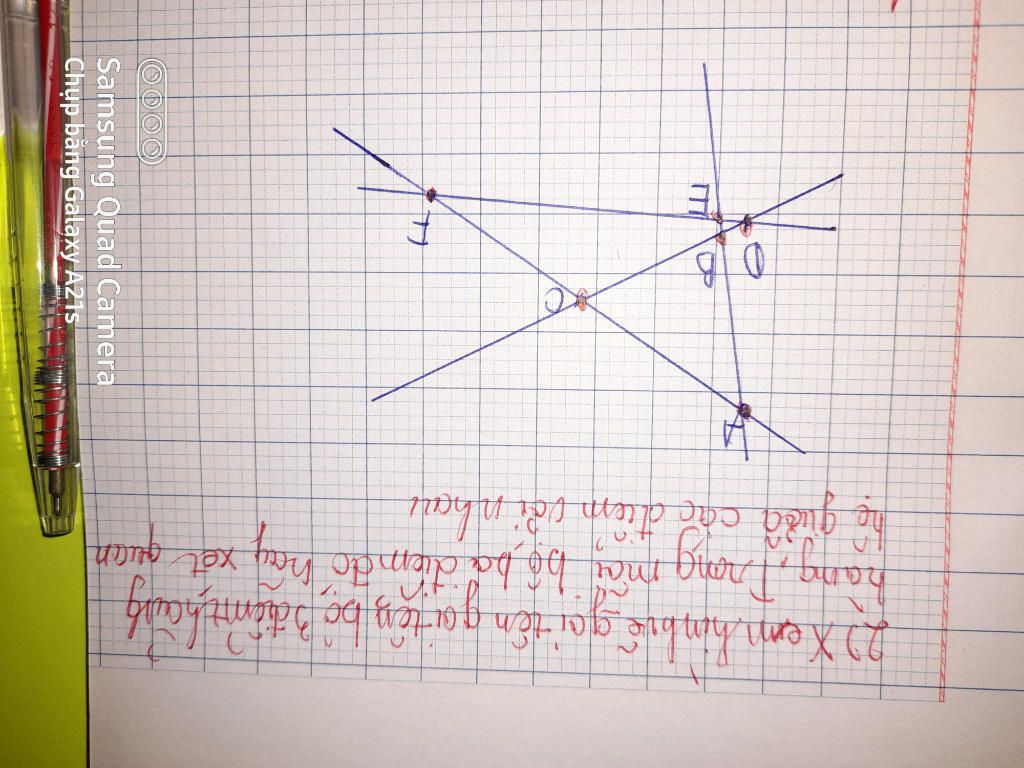 2) Xem hình vẽ gọi tên gọi tên bộ 3 điểm thẳng
hàng, Trong mỗi bộ ba điểm đó hãy xét quan
hệ giữa các điểm với nhau
A
B
D
C
E
F
Samsung Quad Camera
Chụp bằng Galaxy A21s